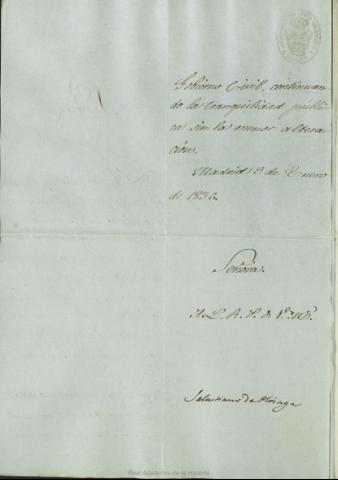 Gobierno Civil, continuan
do la tranquilidad públi
ca sin la menor altera
ción.
Madrid 9 de Enero
de 1836.
Señora.
A. L. R. P. de V. M.
Salustiano de Olózaga
Real Academia de la Historia